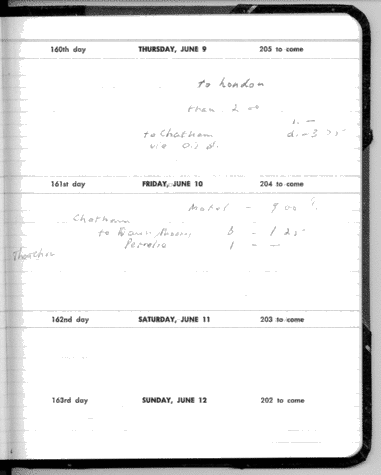 160th day THURSDAY, JUNE 9 205 to come
to London
then 2 00
1. —
to Chatham d. - 3 25
via
161st day FRIDAY, JUNE 10 204 to come
Motel - 9 00
Chatham
to B - 1 25
1 - -
162nd day SATURDAY, JUNE 11 203 to come
163rd day SUNDAY, JUNE 12 202 to come